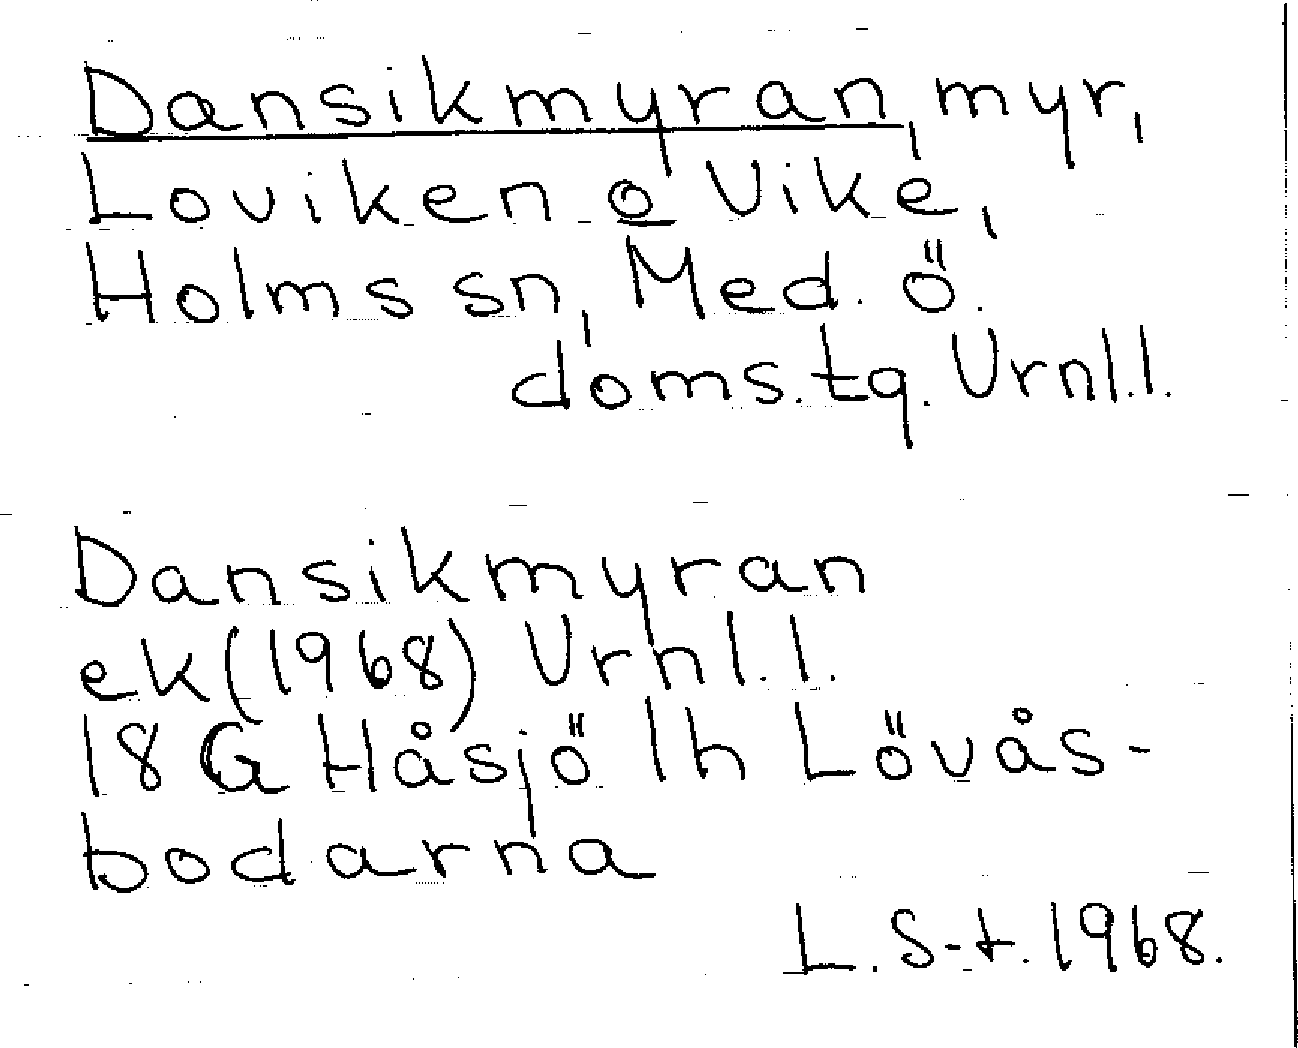 Dansikmyran, myr,
Loviken o Vike,
Holms sn, Med. ö.
doms.tq. Vrnl.l.
Dansikmyran
ek (1968) Vrnl.l.
18 G Håsjö 1h Lövås-
bodarna
L. S-t. 1968.